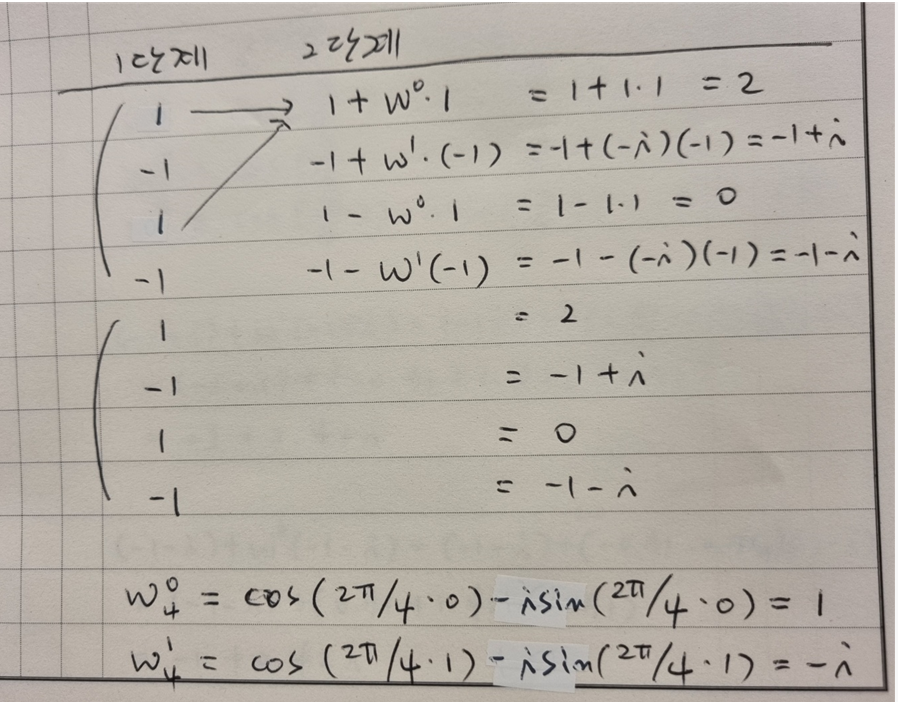 1단계 2단계
1 → 1 + w⁰·1 = 1 + 1·1 = 2
-1 -1 + w¹·(-1) = -1 + (-i)(-1) = -1 + i
1 1 - w⁰·1 = 1 - 1·1 = 0
-1 -1 - w¹(-1) = -1 - (-i)(-1) = -1 - i
1 = 2
-1 = -1 + i
1 = 0
-1 = -1 - i
w₄⁰ = cos(2π/4·0) - isin(2π/4·0) = 1
w₄¹ = cos(2π/4·1) - isin(2π/4·1) = -i